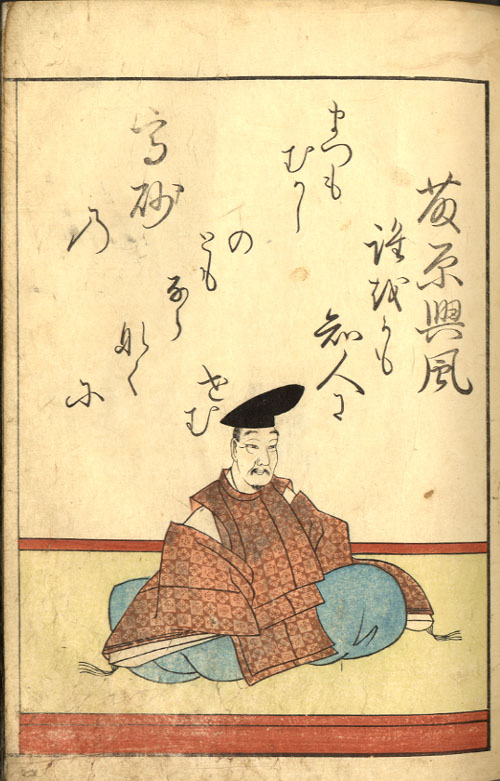 藤原興風
誰越かも
知人に
せむ
高砂
乃
まつも
むかし
の
とも
なら
なく
に